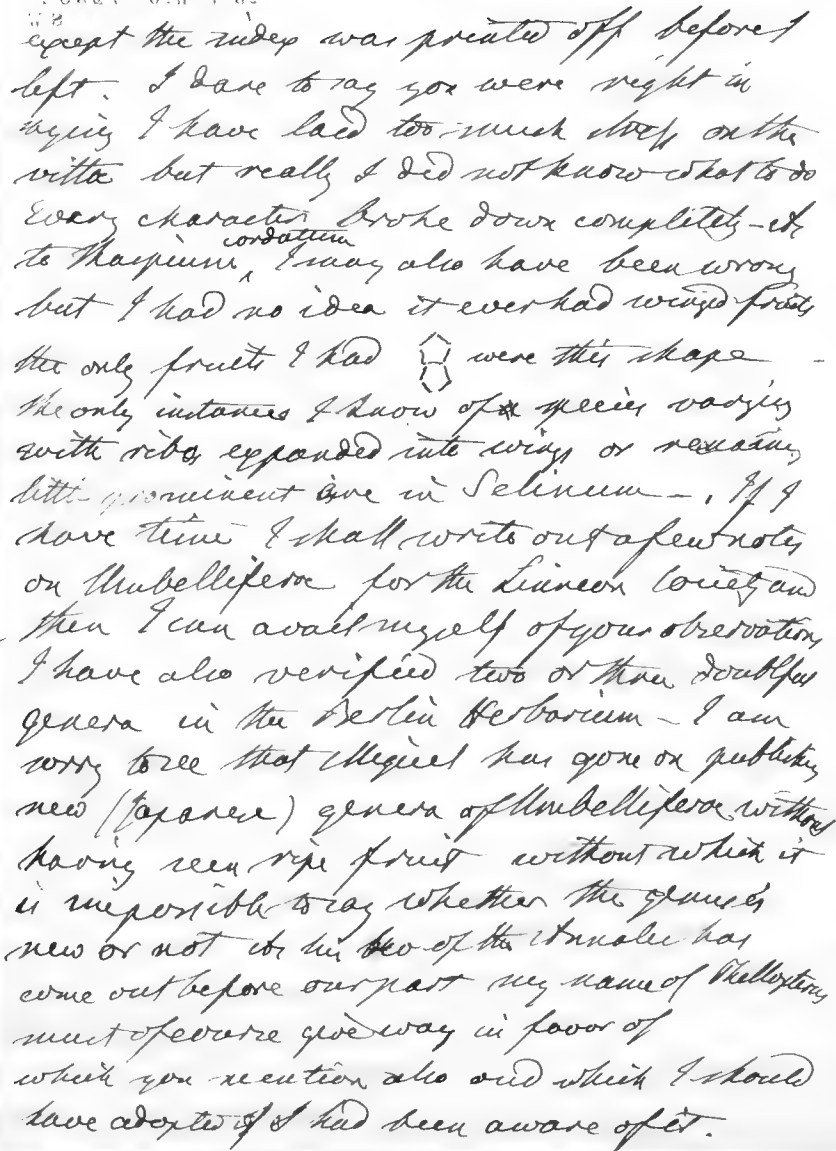 except the index was printed off before I
left. I dare to say you were right in
saying I have laid too much stress on the
vittæ but really I did not know what to do
Every character broke down completely – As
to Thaspium cordatum I may also have been wrong
but I had no idea it ever had winged fruits
the only fruits I had were this shape
the only instances I know of species varying
with ribs expanded into wings or remaining
little prominent are in Selinum –. If I
have time I shall write out a few notes
on Umbelliferæ for the Linnean Society and
then I can avail myself of your observations
I have also verified two or three doubtful
genera in the Berlin Herbarium – I am
sorry to see that Miquel has gone on publishing
new (Japanese) genera of Umbelliferæ without
having seen ripe fruit without which it
is impossible to say whether the genus is
new or not As his of the Annales has
come out before our part my name of Phellopterus
must of course give way in favor of
which you mention also and which I should
have adopted if I had been aware of it.